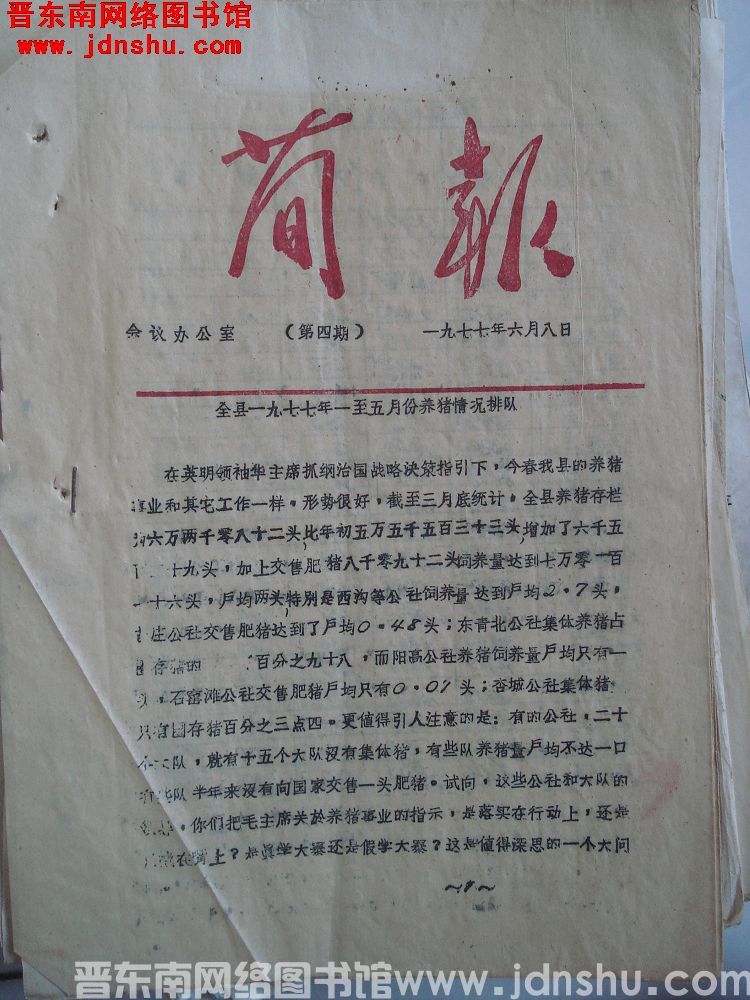 晋东南网络图书馆
www.jdnshu.com
简报
会议办公室 （第四期） 一九七七年六月八日
全县一九七七年一至五月份养猪情况排队
在英明领袖华主席抓纲治国战略决策指引下，今春我县的养猪
事业和其它工作一样。形势很好，截至三月底统计。全县养猪存栏
为六万两千零八十二头，比年初五万五千五百三十三头，增加了六千五
十九头，加上交售肥猪八千零九十二头饲养量达到七万零一百
一十六头，户均两头，特别是西沟等公社饲养量达到户均2.7头，
庄公社交售肥猪达到了户均0.48头；东青北公社集体养猪占
存猪的 百分之九十八，而阳高公社养猪饲养量户均只有一
头，石窑滩公社交售肥猪户均只有0.07头；杏城公社集体猪
只有圈存猪百分之三点四。更值得引人注意的是：有的公社，二十
个大队，就有十五个大队没有集体猪，有些队养猪量户均不达一口
有些队半年来没有向国家交售一头肥猪。试向，这些公社和大队的
，你们把毛主席关於养猪事业的指示，是落实在行动上，还是
在嘴上？是真学大寨还是假学大寨？这是值得深思的一个大问
～1～
晋东南网络图书馆www.jdnshu.com